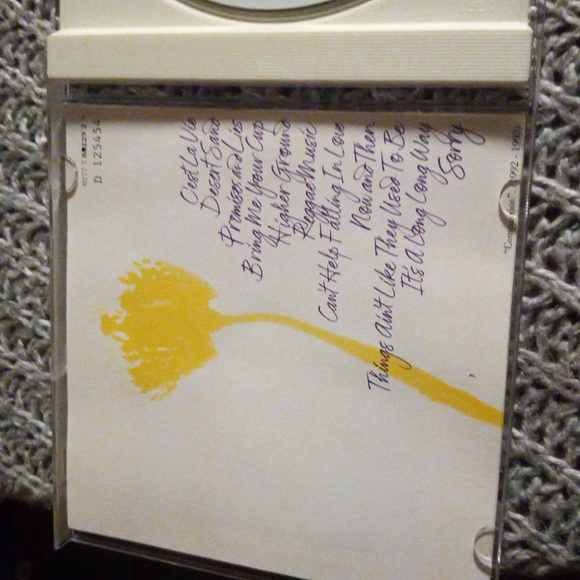 C'est La Vie
Desert Sand
Promises and Lies
Bring Me Your Cup
Higher Ground
Reggae Music
Can't Help Falling In Love
Now and Then
Things Ain't Like They Used To Be
It's A Long Long Way
Sorry
D 125454
1992 - 1993